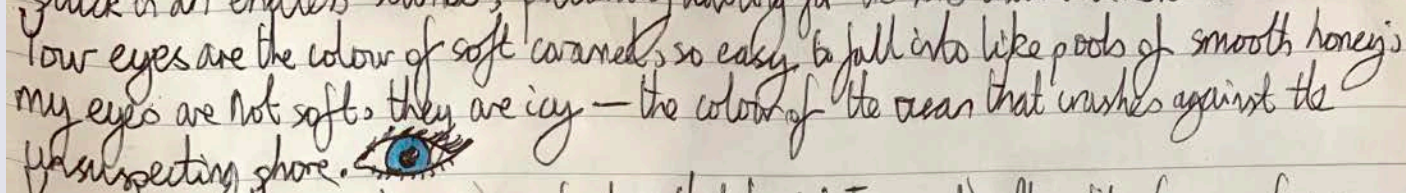 Your eyes are the colour of soft caramel, so easy to fall into like pools of smooth honey;
my eyes are not soft, they are icy – the colour of the ocean that crushes against the
unsuspecting shore.